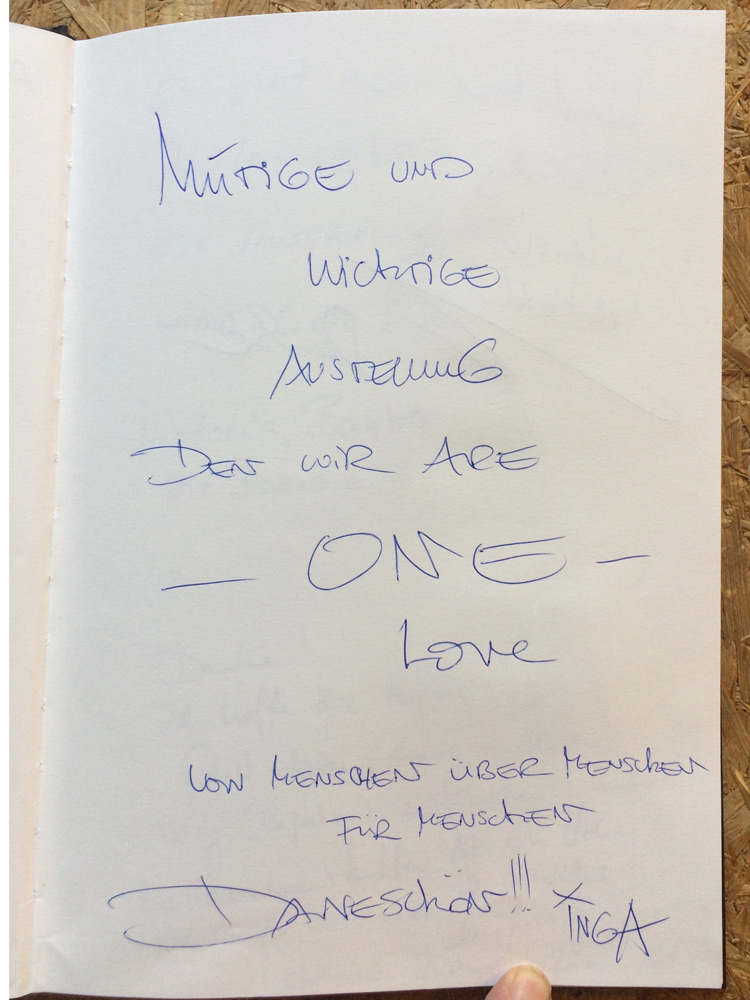 MUTIGE UND
WICHTIGE
AUSTELLUNG
DEN WIR ARE
— ONE —
Love
VON MENSCHEN ÜBER MENSCHEN
FÜR MENSCHEN
DANKESCHÖN!!! x INGA